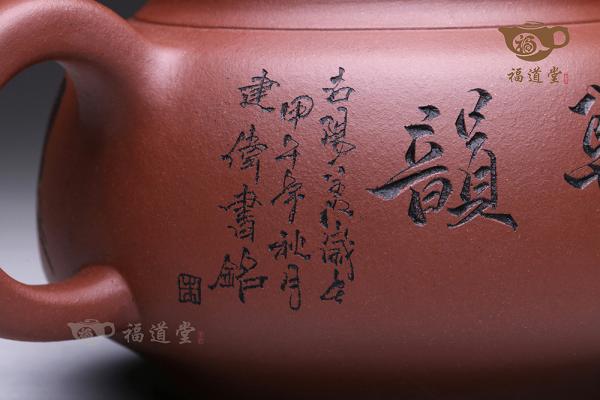 福道堂
韻
古陽羨
甲午年秋月
建偉書銘
福道堂